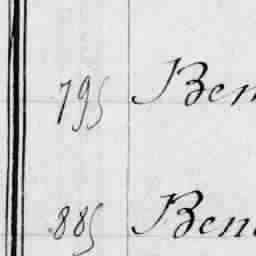 795 Ben
885 Ben